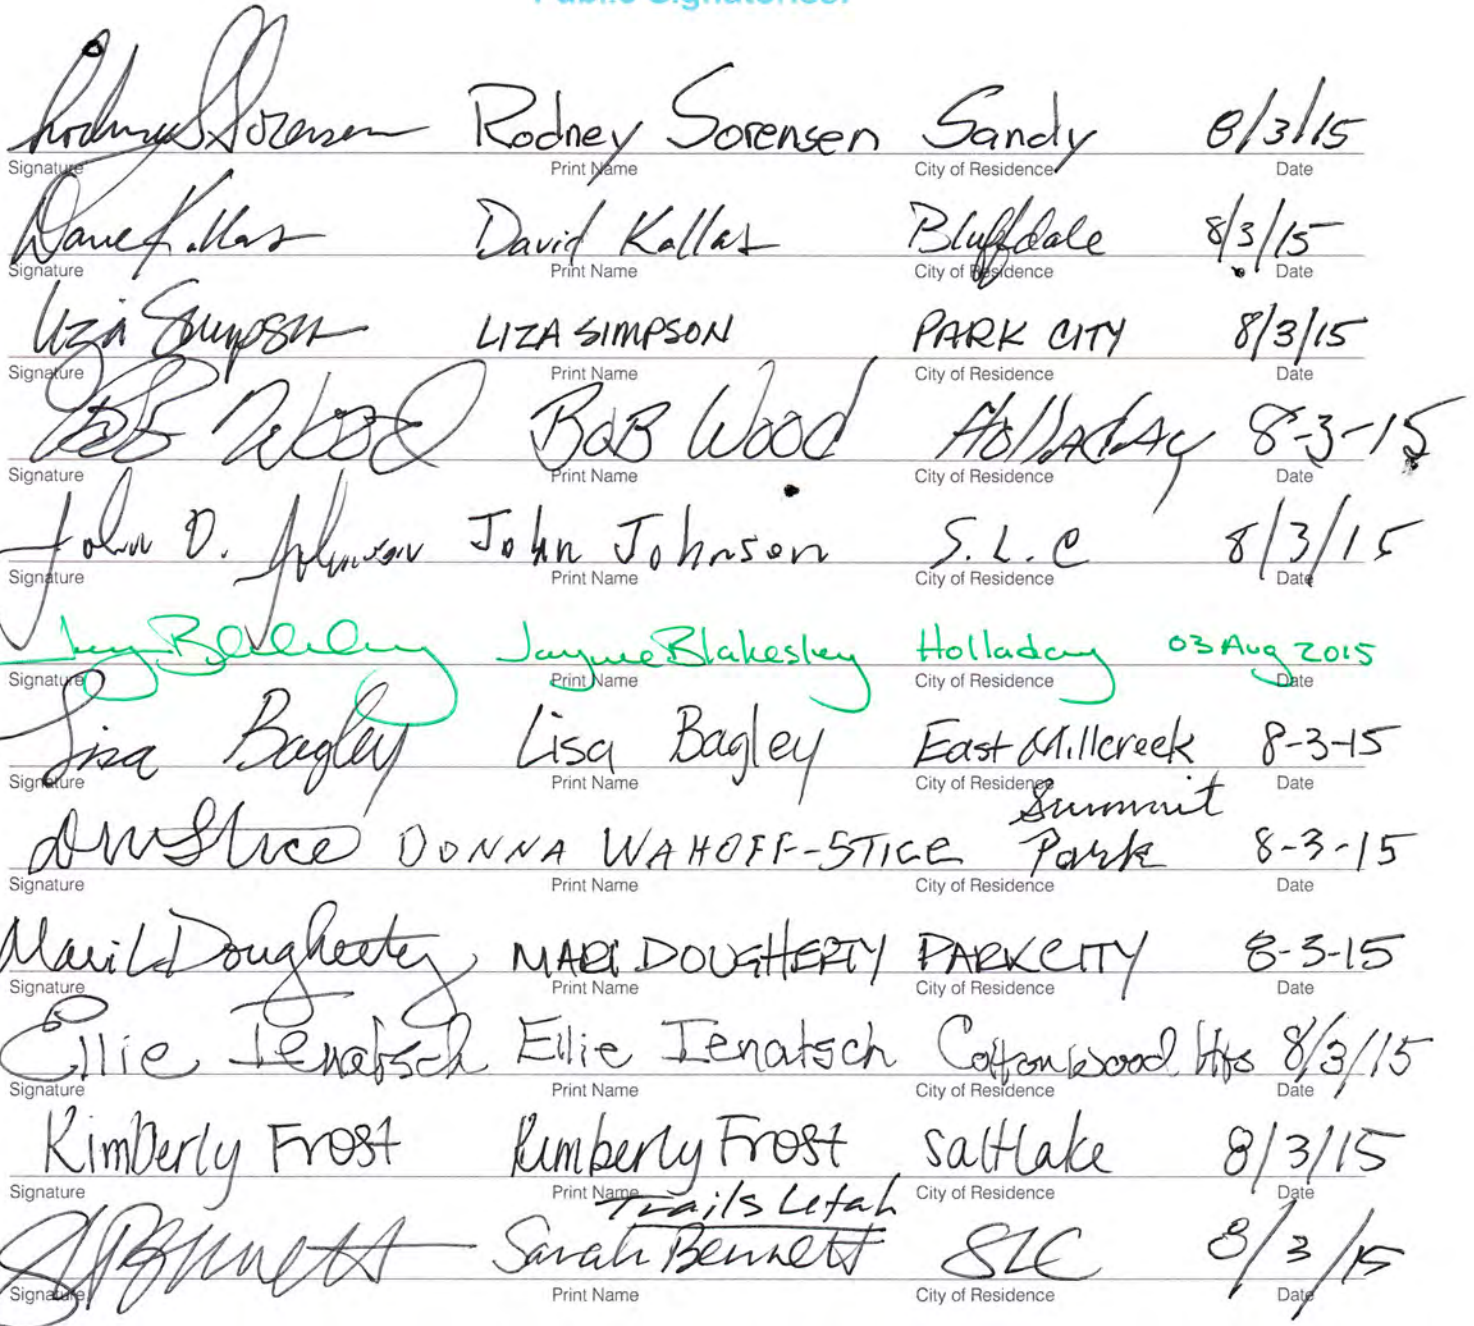 Public Signatories:
Rodney Sorensen Rodney Sorensen Sandy 8/3/15
Signature Print Name City of Residence Date
Dave Kallas David Kallas Bluffdale 8/3/15
Signature Print Name City of Residence Date
Liza Simpson LIZA SIMPSON PARK CITY 8/3/15
Signature Print Name City of Residence Date
BOB WOOD BOB Wood HOllADAy 8-3-15
Signature Print Name City of Residence Date
John D. Johnson John Johnson S.L.C 8/3/15
Signature Print Name City of Residence Date
Jayme Blakesley Jayme Blakesley Holladay 03 Aug 2015
Signature Print Name City of Residence Date
Lisa Bagley Lisa Bagley East Millcreek 8-3-15
Signature Print Name City of Residence Date
Summit
DWStice DONNA WAHOFF-STICE Park 8-3-15
Signature Print Name City of Residence Date
Mari L Dougherty MARI DOUGHERTY PARK CITY 8-3-15
Signature Print Name City of Residence Date
Ellie Ienatsch Ellie Ienatsch Cottonwood Hts 8/3/15
Signature Print Name City of Residence Date
Kimberly Frost Kimberly Frost saltlake 8/3/15
Signature Print Name City of Residence Date
Trails Utah
Bennett Sarah Bennett SLC 8/3/15
Signature Print Name City of Residence Date